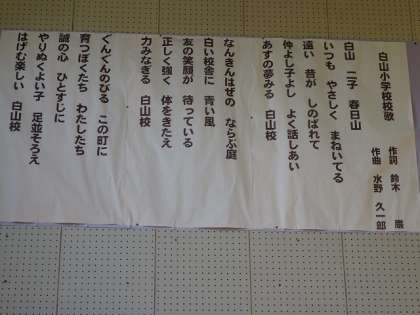 白山小学校校歌
作詞 鈴木 巌
作曲 水野 久一郎
白山 二子 春日山
いつも やさしく まねいてる
遠い 昔が しのばれて
仲よし子よし よく話しあい
あすの夢みる 白山校
なんきんはぜの ならぶ庭
白い校舎に 青い風
友の笑顔が 待っている
正しく強く 体をきたえ
力みなぎる 白山校
ぐんぐんのびる この町に
育つぼくたち わたしたち
誠の心 ひとすじに
やりぬくよい子 足並そろえ
はげむ楽しい 白山校